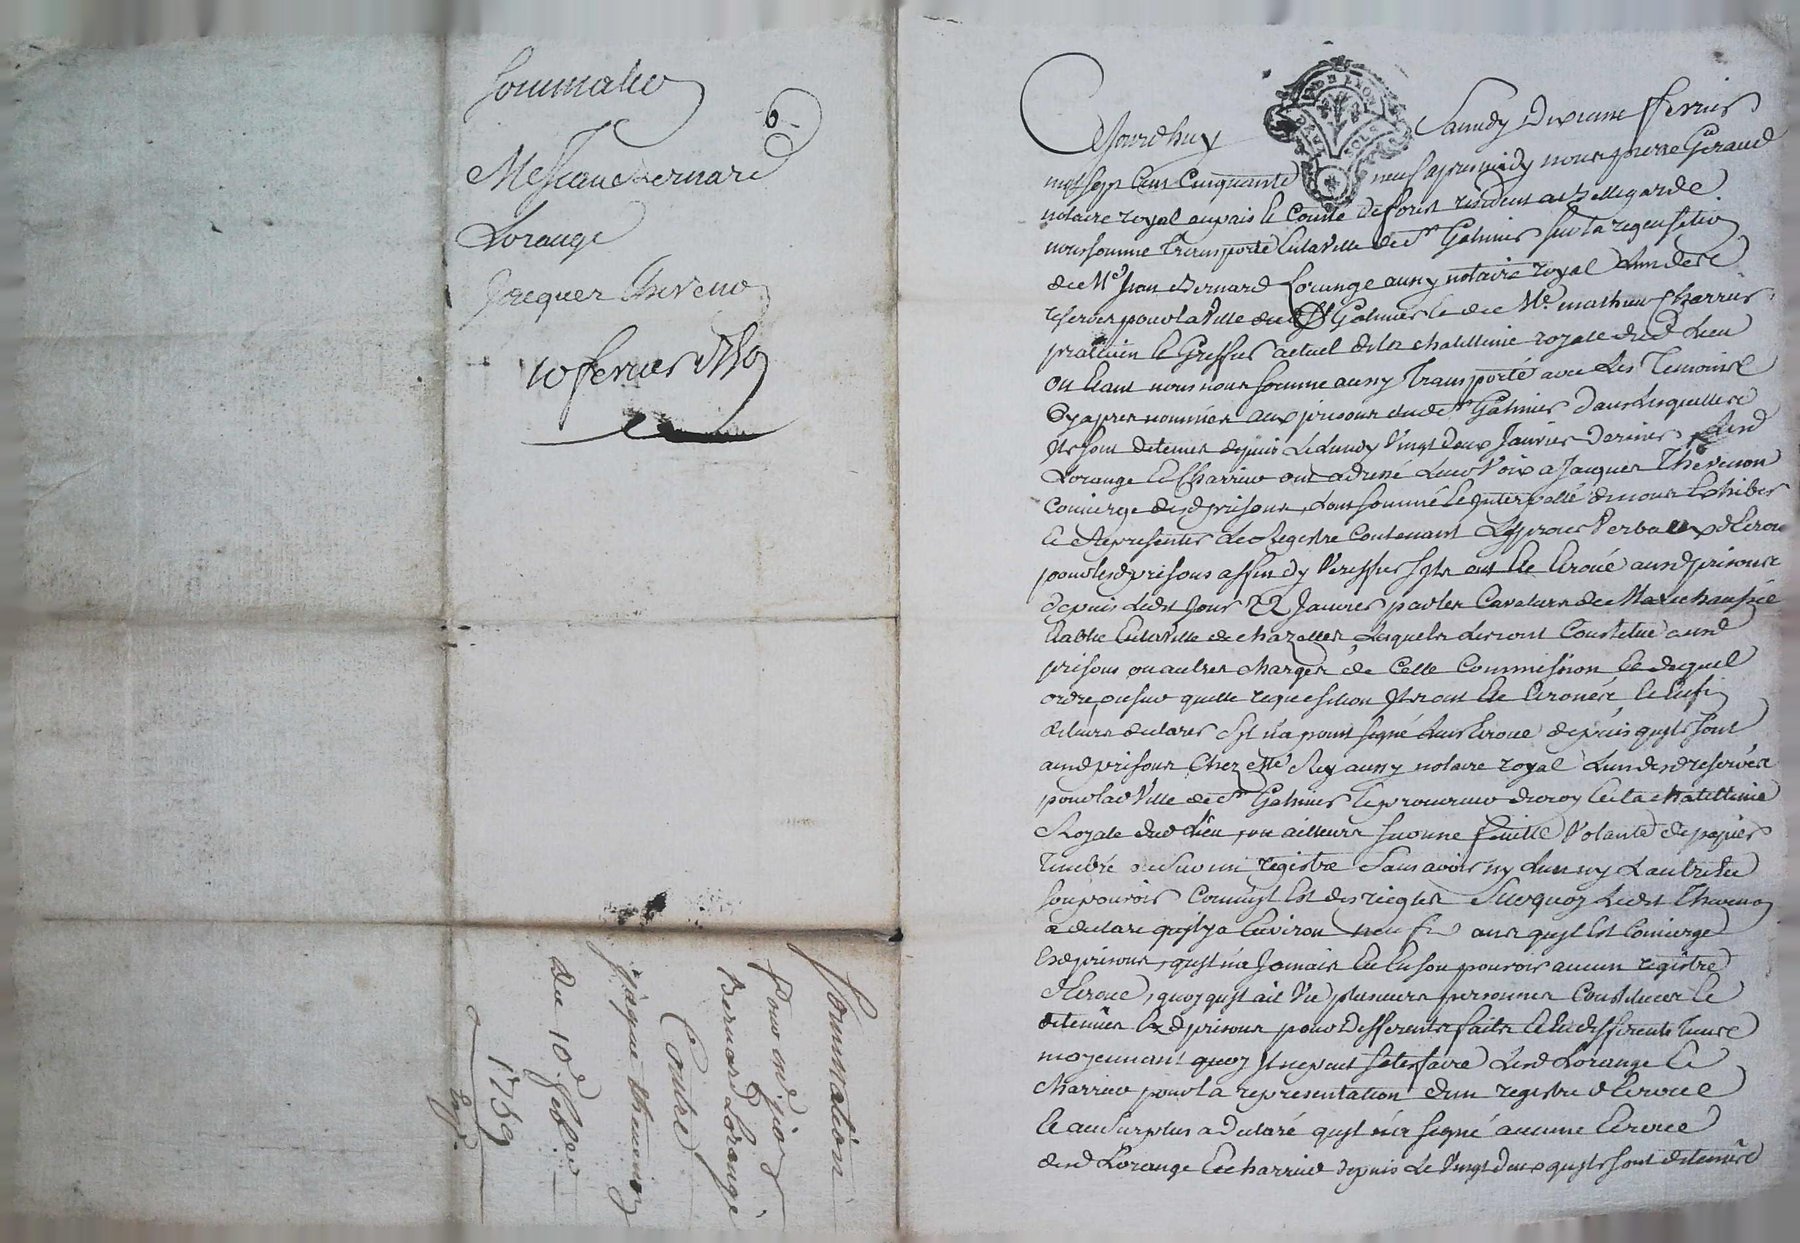 Sommation
6
Me Jean Bernard
Lorange
Jacques Thevenon
10 fevrier 1759
Sommation
Pour me Jean
Bernard Lorange
Contre
jaque thevenon
du 10e febvrier
1759
GEN DE LYON
DEUX SOLS
Cejourdhuy Samedy Dixieme fevrier
mil sept Cens Cinquante neuf apres midy nous pierre Geraud
notaire royal au pais le Comté de forest resident a Bellegarde
nous somme Transporté En la Ville de St Galmier sur la requisition
de Me Jean Bernard Lorange aussy notaire royal Lun des
reservés pour la Ville dud St Galmier Et de Me mathieu Charrus
praticien Et Greffier actuel de la chatellenie royale dud Lieu
ou Etant nous nous somme aussy Transporté avec Les Temoins
Cy apres nommés aux prisons dud St Galmier dans lesquelles
Ils sont detenus depuis Le lundy Vingt deux Janvier dernier Lesd
Lorange Et Charrus ont adressé Leur Voix a Jacques Thevenon
Concierge desd prisons, Lont sommé Et Interpellé de nous Exhiber
Et Representer Le Registre Contenant Les proces Verbaux dEcrou
pour lesd prisons affin dy Veriffier sils ont Eté Ecroué auxd prisons
depuis Ledit Jour 22 Janvier par les Cavaliers de Marechaussée
Etablie En la Ville de chazelles Lesquels Les ont Constitué auxd
prisons ou autres chargés de Cette Commission Et de quel
ordre, ou sur quelle requisition Ils ont Eté Ecroués Et Enfin
de luire declarer sil na point signé Leur Ecroue depuis quils sont
auxd prisons Chez Me Rey aussy notaire royal Lun desd reservés
pour lad Ville de St Galmier Et procureur du roy En la chatellenie
Royale dud Lieu, ou ailleurs sur une feuille Volante de papier
Timbré ou sur un registre Sans avoir ny Lun ny Lautre En
son pouvoir Comme Il Est des regles Surquoy Ledit Thevenon
a declaré quil y a Environ neuf ans quil Est Concierge
Esd prisons, quil na Jamais Eu En son pouvoir aucun registre
dEcroue, quoyquil ait Vu plusieurs personnes Constituees Et
detenues Esd prisons pour differents faits Et En differents Temps
moyennant quoy Il ne peut satisfaire Lesd Lorange Et
Charrus pour la representation dun registre dEcroue
Et au Surplus a declaré quil na signé aucune Ecroue
desd Lorange Et charrus depuis Le Vingt deux quils sont detenus